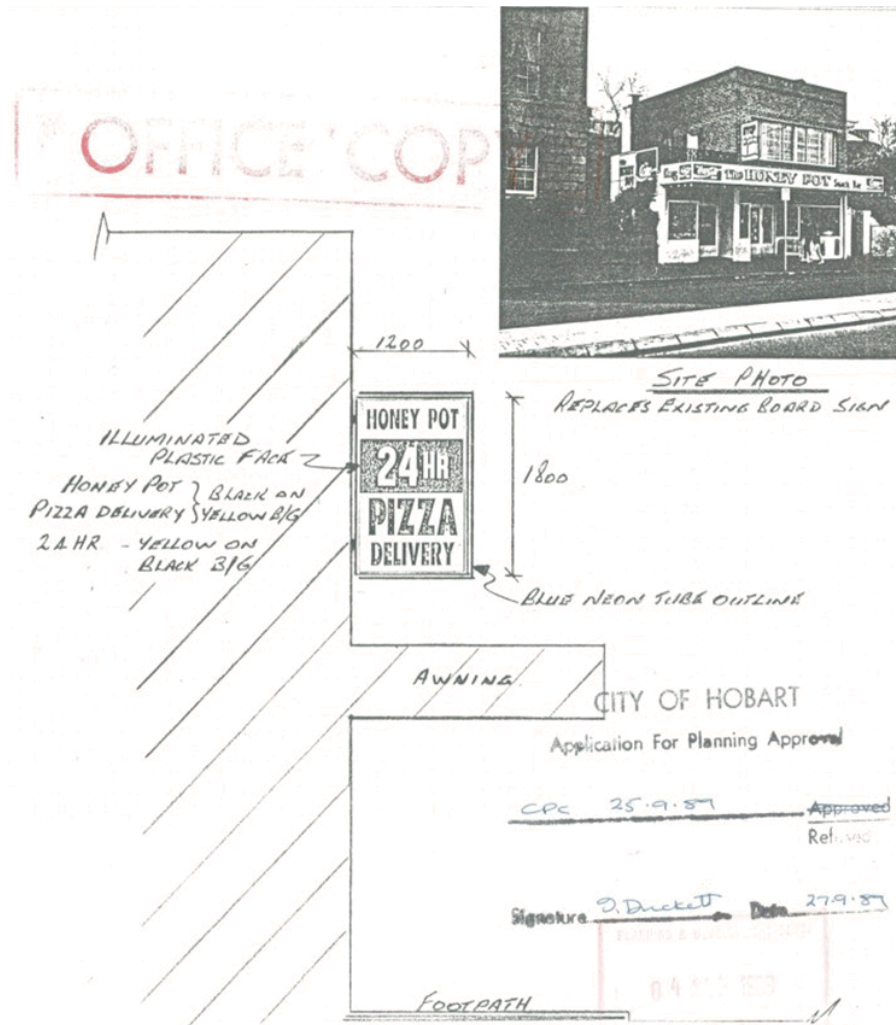 OFFICE COPY
The HONEY POT Snack Bar
SITE PHOTO
REPLACES EXISTING BOARD SIGN
1200
HONEY POT
24 HR
PIZZA
DELIVERY
1800
ILLUMINATED
PLASTIC FACE
HONEY POT } BLACK ON
PIZZA DELIVERY } YELLOW B/G
24 HR - YELLOW ON
BLACK B/G
BLUE NEON TUBE OUTLINE
AWNING
CITY OF HOBART
Application For Planning Approval
CPC 25.9.89 Approved
Refused
Signature D. Duckett Date 27.9.89
FOOTPATH